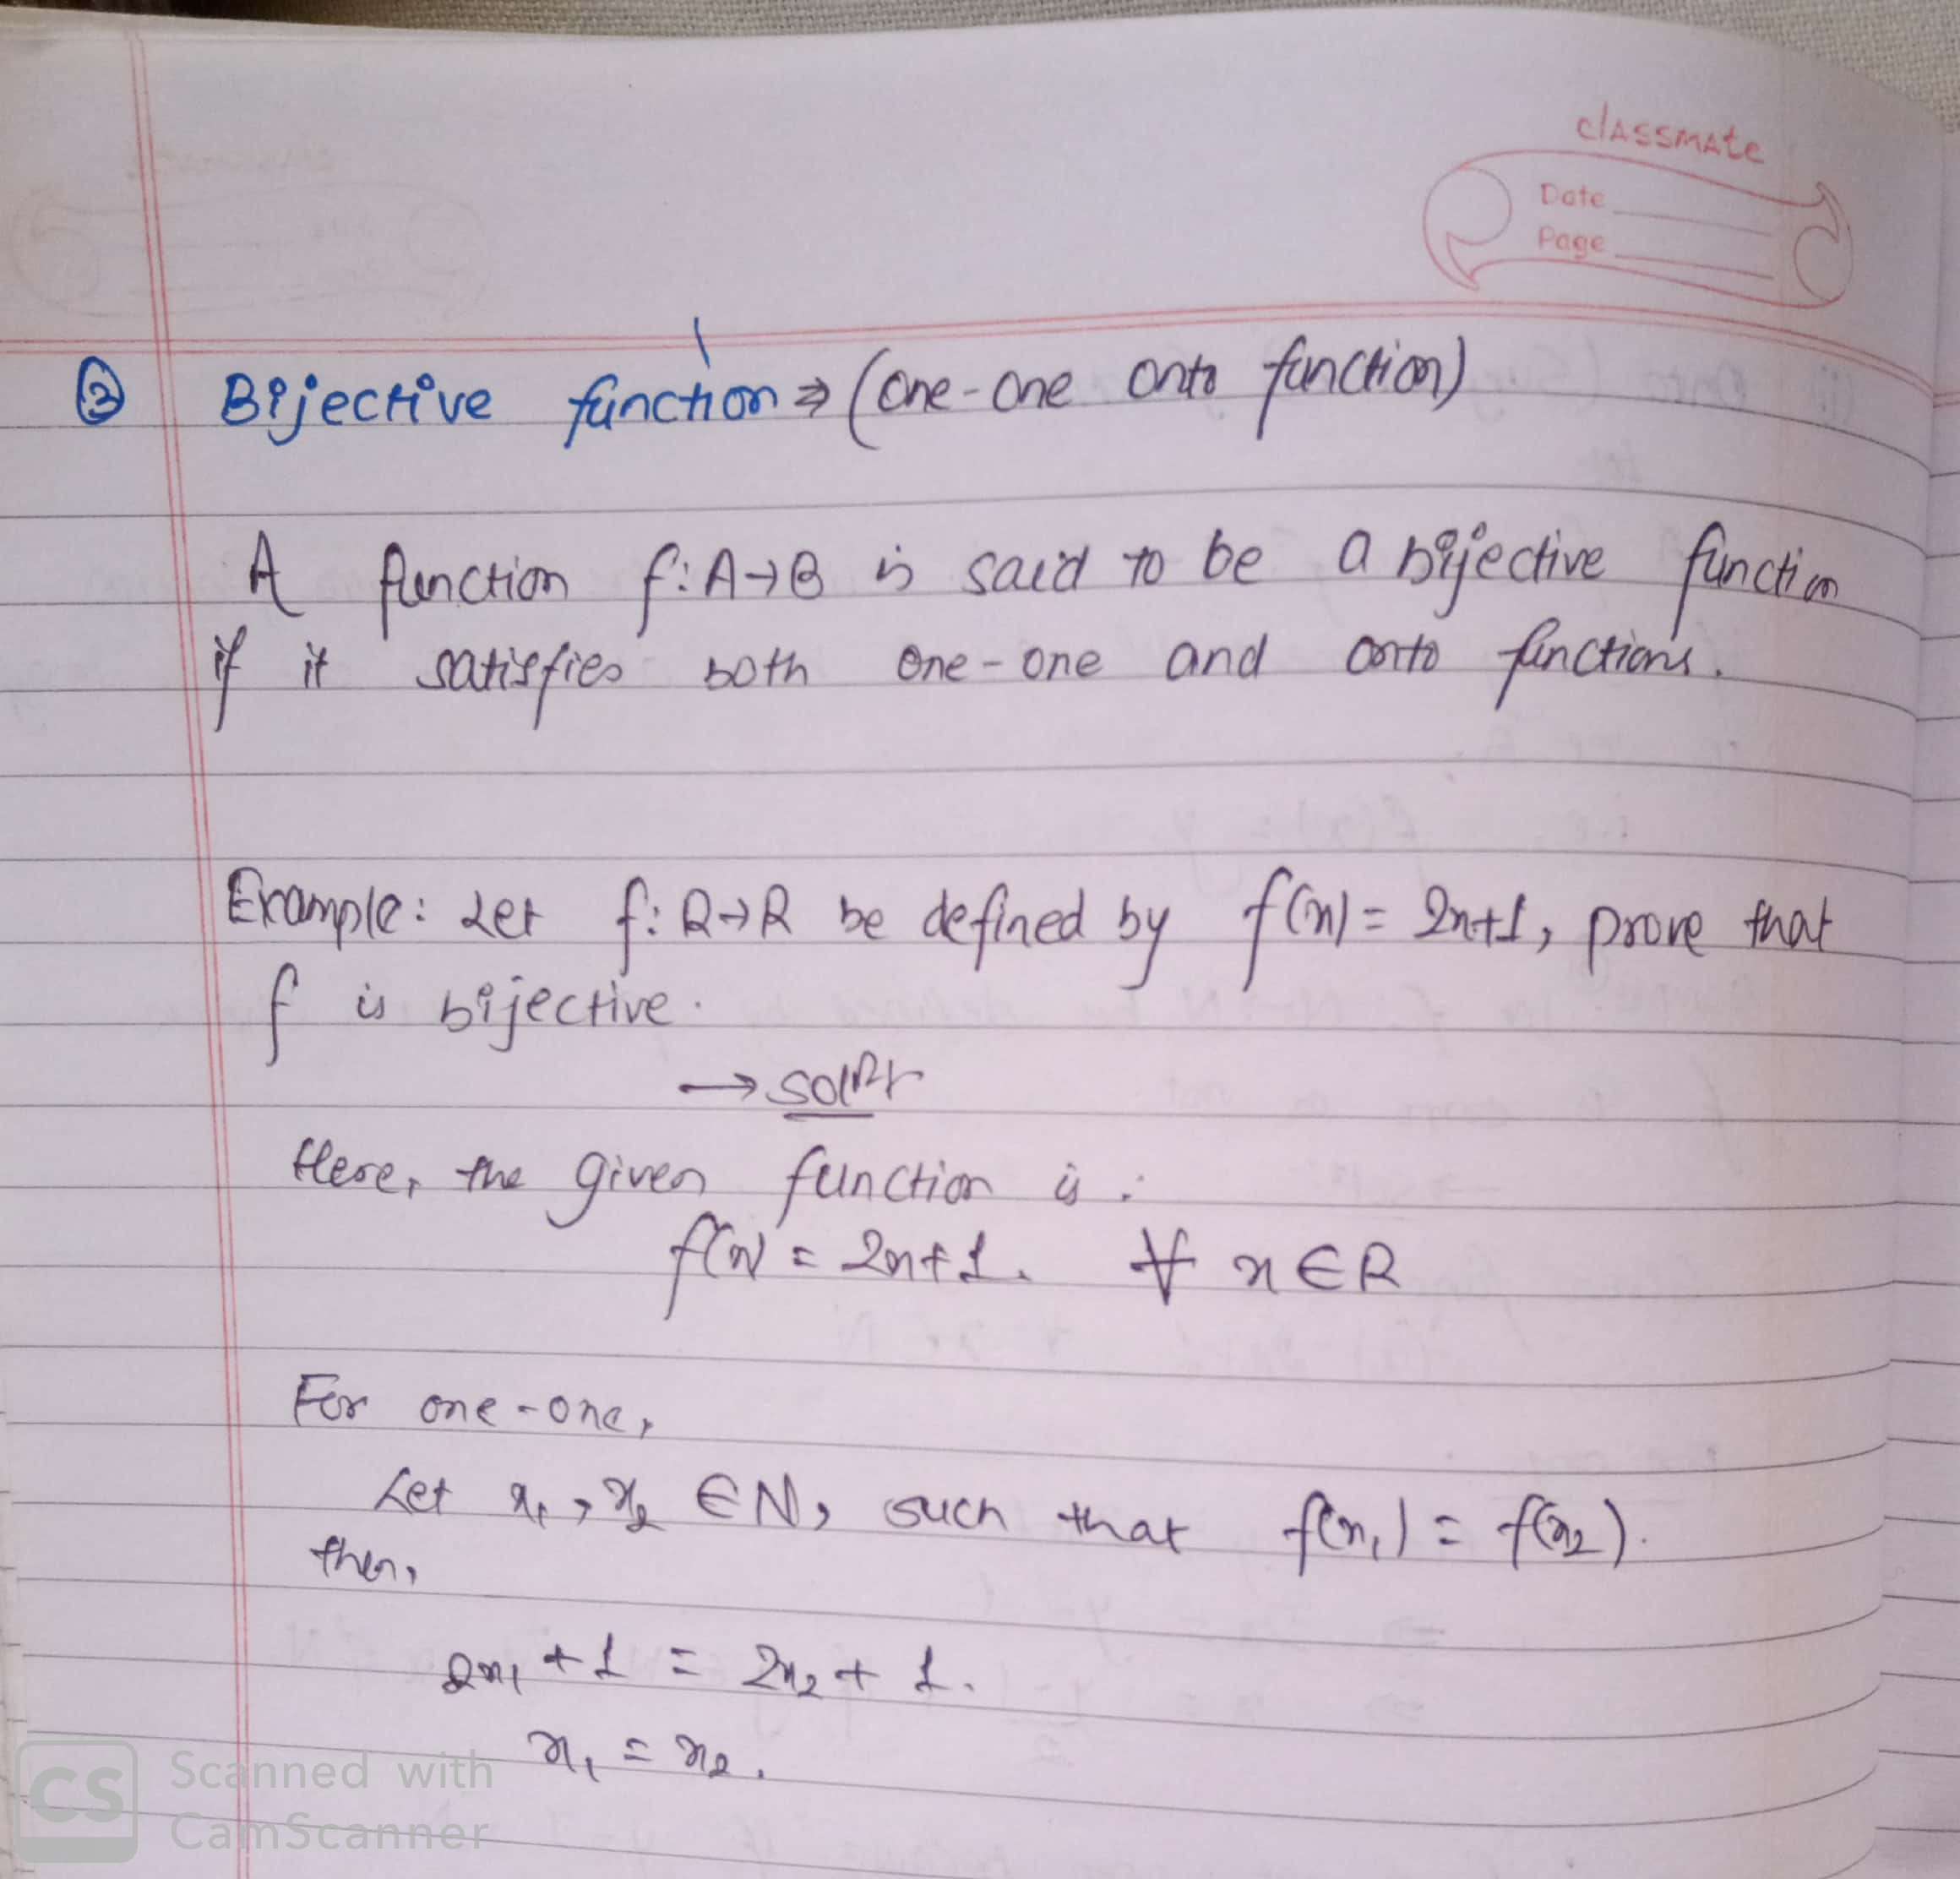 classmate
Date
Page
③ Bijective function ⇒ (one-one onto function)
A function f: A→B is said to be a bijective function
if it satisfies both one-one and onto functions.
Example: Let f: R→R be defined by f(x) = 2x+1, prove that
f is bijective.
→ solⁿ
Here, the given function is :
f(x) = 2x+1. ∀ x ∈ R
For one-one,
Let x₁, x₂ ∈ N, such that f(x₁) = f(x₂).
then,
2x₁ + 1 = 2x₂ + 1.
x₁ = x₂.
CS Scanned with
CamScanner